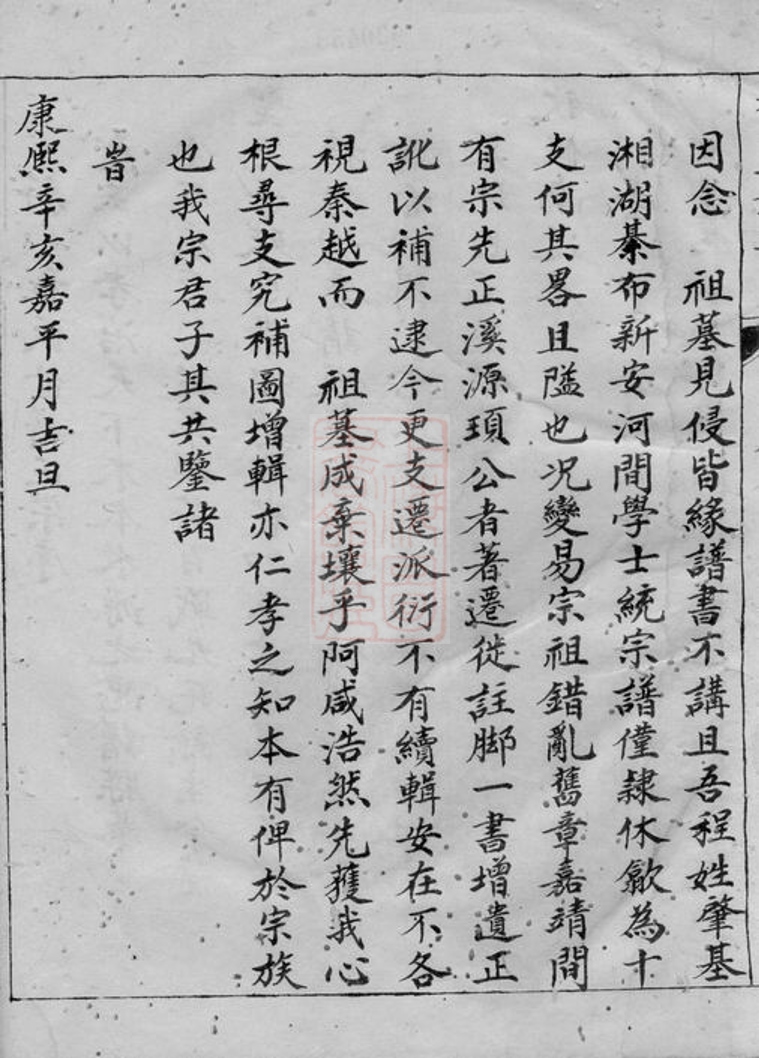 因念　祖墓見侵皆緣譜書不講且吾程姓肇基
湘湖綦布新安河間學士統宗譜僅隷休歙為十
支何其畧且隘也况變易宗祖錯亂舊章嘉靖間
有宗先正溪源頊公者著遷徙註脚一書增遺正
訛以補不逮今更支遷派衍不有續輯安在不各
視秦越而　祖墓成棄壤乎阿咸浩然先獲我心
根尋支究補圖增輯亦仁孝之知本有俾於宗族
也我宗君子其共鑒諸
旹
康熙辛亥嘉平月吉旦